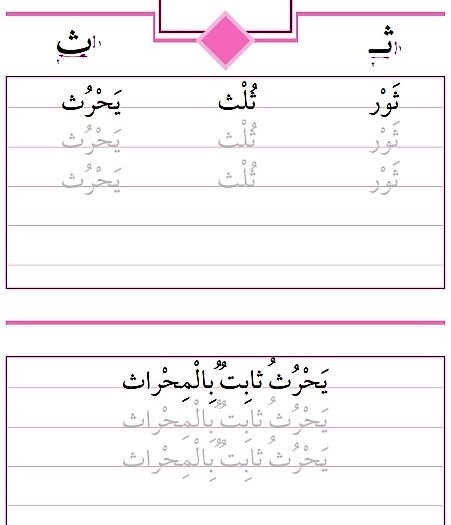 ثـ ث
ثَوْر ثُلْث يَحْرُث
ثَوْر ثُلْث يَحْرُث
ثَوْر ثُلْث يَحْرُث
يَحْرُثُ ثابِتٌ بِالْمِحْراث
يَحْرُثُ ثابِتٌ بِالْمِحْراث
يَحْرُثُ ثابِتٌ بِالْمِحْراث